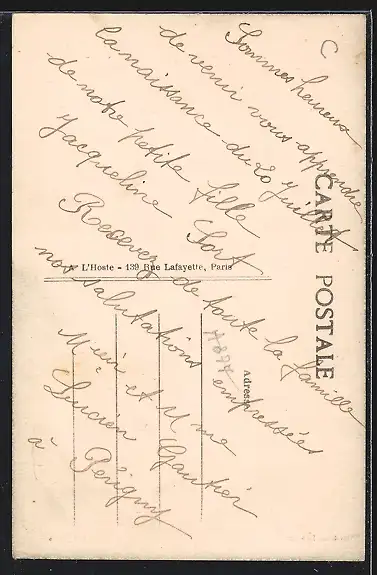 C
Sommes heureux
de venir vous apprendre
la naissance du 20 Juillet
de notre petite fille
Jacqueline Sort
Recevez de toute la famille
nos salutations empressées
Meur et Mme
Lucien Gautier
à Périgny
CARTE POSTALE
A. L'Hoste - 139 Rue Lafayette, Paris
Adresse